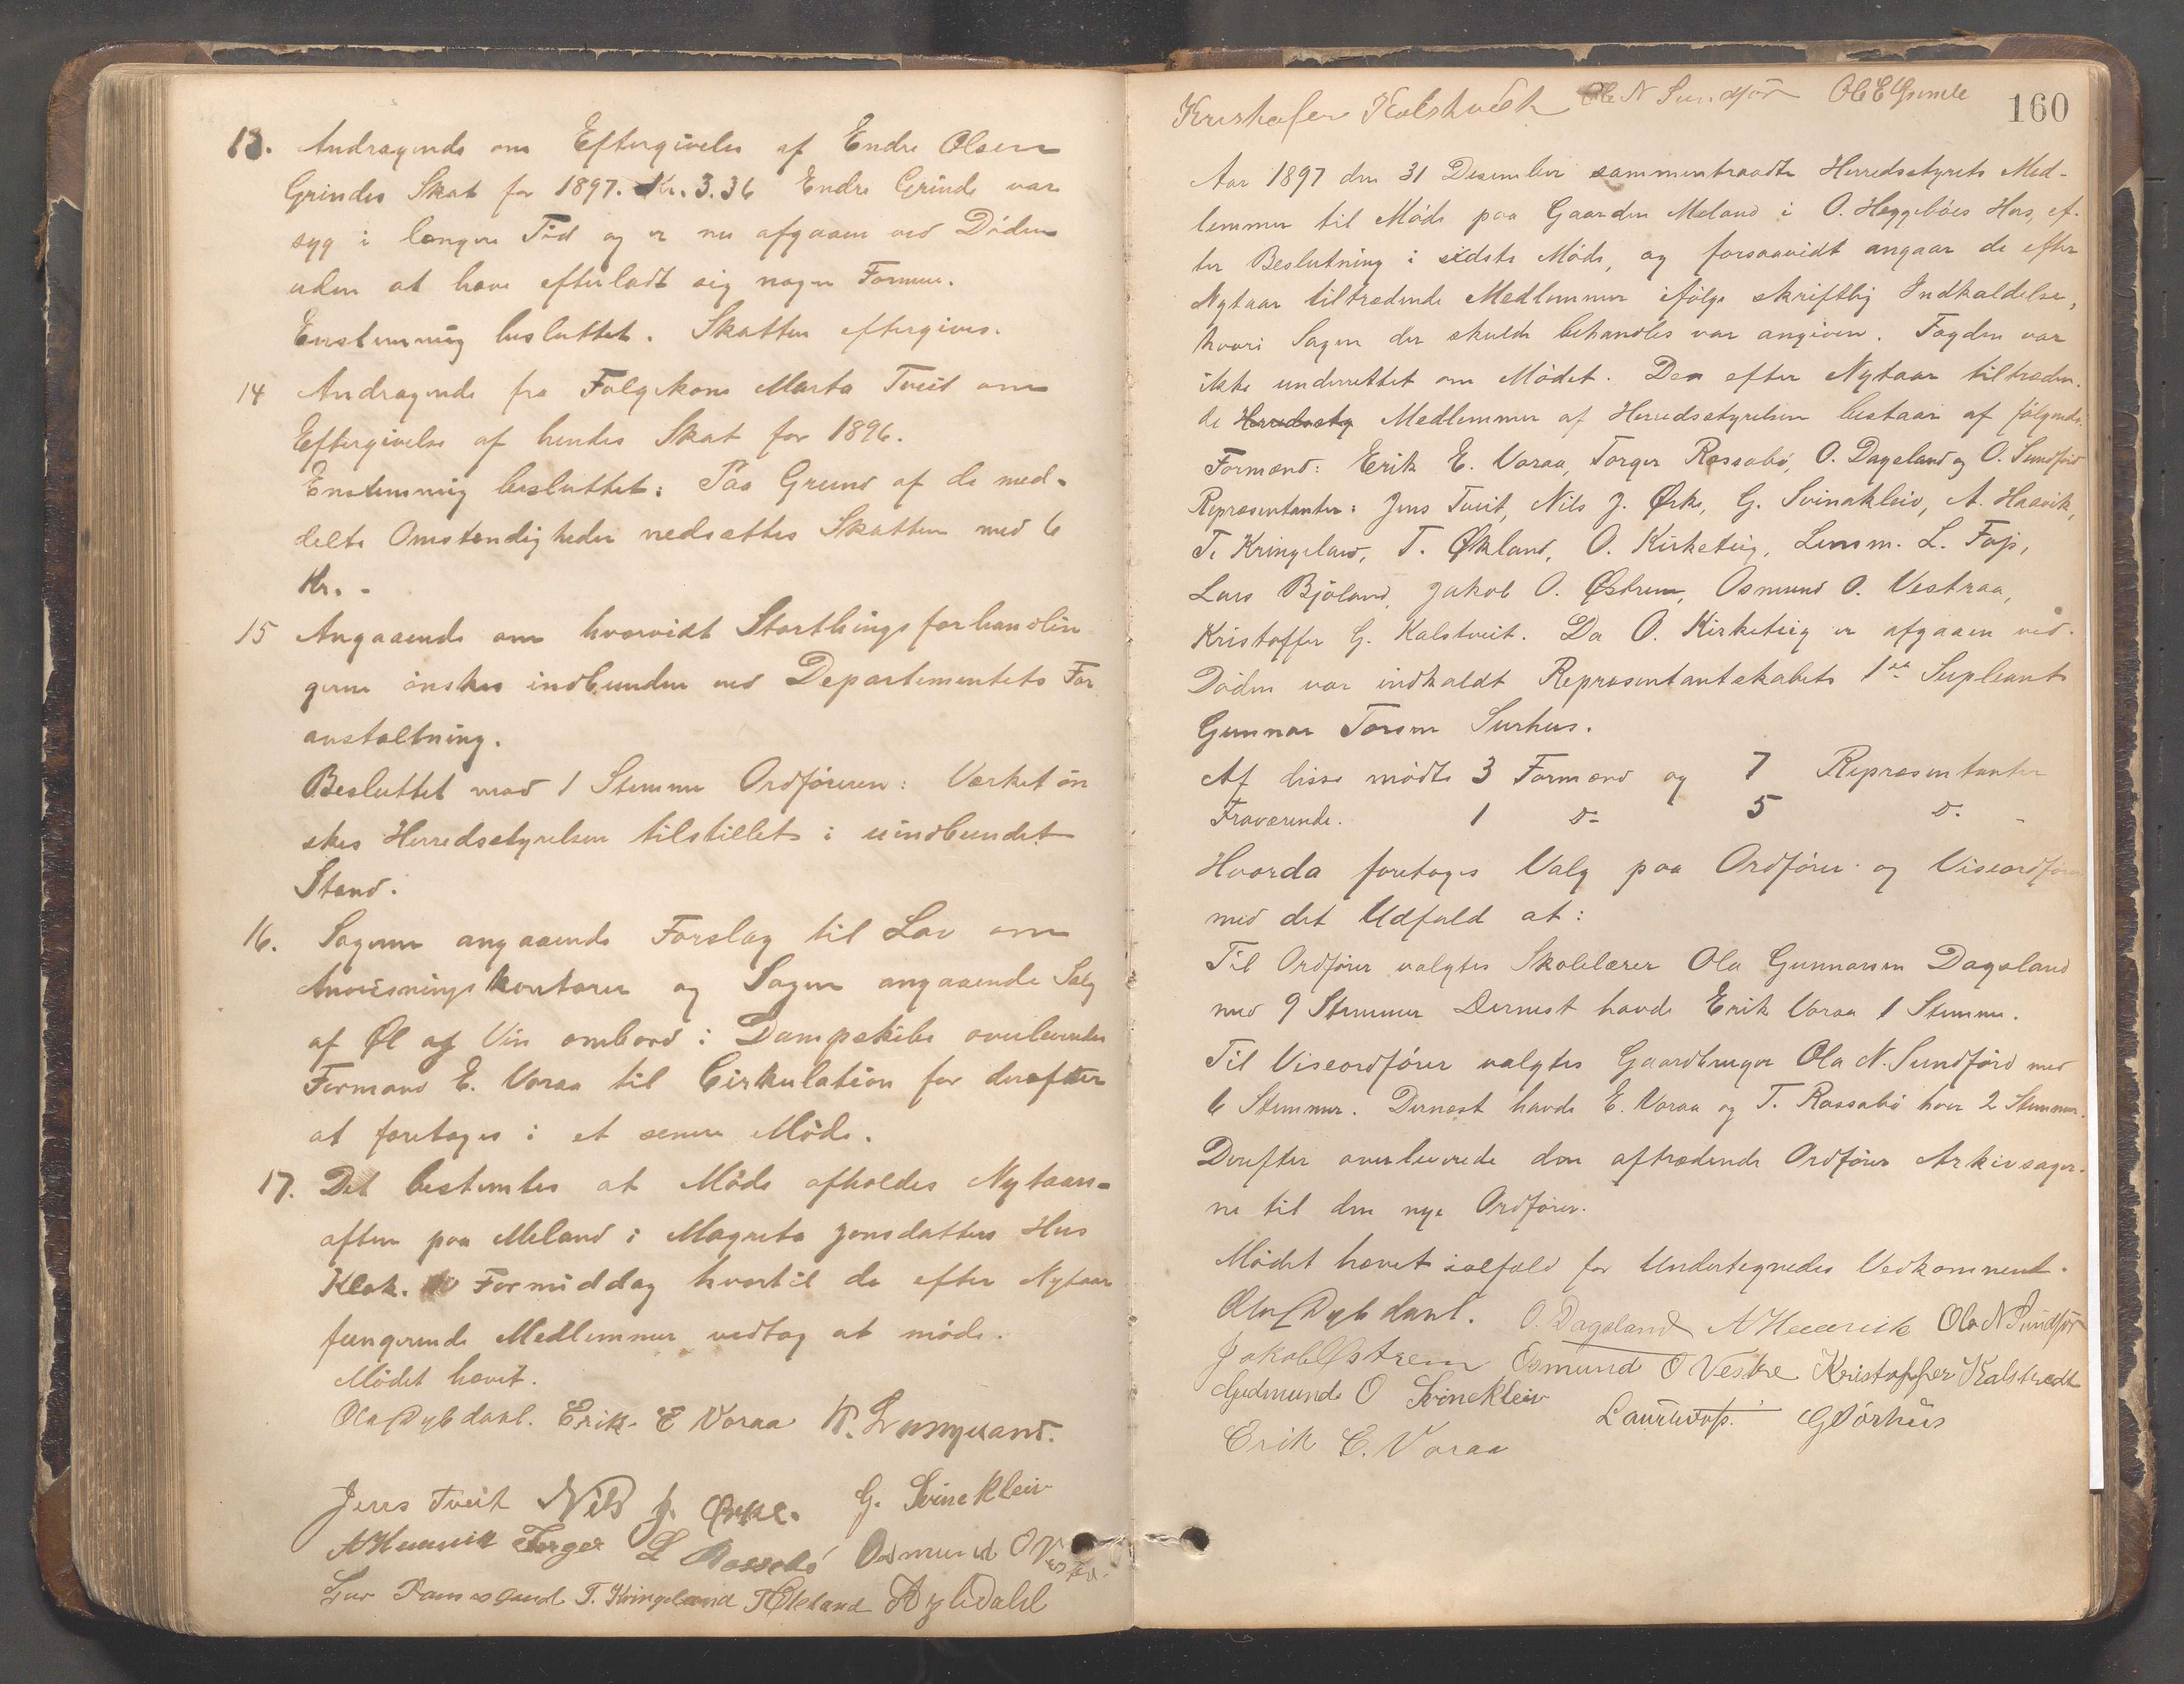 13. Andragende om Eftergivelse af Endre Olsen
Grindes Skat for 1897. Kr. 3.36 Endre Grinde var
syg i længere Tid og er nu afgaaen ved Døden
uden at have efterladt sig nogen Formue.
Enstemmig besluttet. Skatten eftergives.
14 Andragende fra Folgekone Marta Tveit om
Eftergivelse af hendes Skat for 1896.
Enstemmig besluttet: Paa Grund af de med-
delte Omstendigheder nedsættes Skatten med 6
Kr. -
15 Angaaende om hvorvidt Storthingsforhandlin
gerne ønskes indbunden ved Departementets For
anstaltning.
Besluttet mod 1 Stemme Ordføreren: Værket øn
skes Herredsstyrelsen tilstillet i uindbundet
Stand.
16. Sagerne angaaende Forslag til Lov om
Anvisningskontorer og Sagen angaaende Salg
af Øl og Vin ombord i Dampskibe overleveredes
Formand E. Voraa til Cirkulation for derefter
at foretages i et senere Møde.
17. Det bestemtes at Møde afholdes Nytaars-
aften paa Meland i Magreta Jonsdatters Hus
Klok. 10 Formiddag hvortil de efter Nytaar
fungerende Medlemmer vedtog at møde.
Mødet hævet.
Ola Dybdahl. Erik E Voraa
Jens Tveit Nils J. Ørke. G. Svinekleiv
A Haavik Torger L Rossebø Osmund O Vestre
T. Kringeland T Økland Dybdahl
160
Kristofer Kalstveit Ole N Sundfør Ol E Grinde
Aar 1897 den 31 Desember sammentraadte Herredsstyrets Med-
lemmer til Møde paa Gaarden Meland i O. Heggebøes Hus, ef-
ter Beslutning i sidste Møde, og forsaavidt angaar de efter
Nytaar tiltrædende Medlemmer ifølge skriftlig Indkaldelse,
hvori Sagen der skulde behandles var angiven. Fogden var
ikke underrettet om Mødet. Den efter Nytaar tiltræden-
de Herredssty Medlemmer af Herredsstyrelsen bestaar af følgende:
Formænd: Erik E. Voraa, Torger Rossabø, O. Dagsland og O. Sundførd
Repræsentanter: Jens Tveit, Nils J. Ørke, G. Svinakleiv, A. Haavik,
T. Kringeland, T. Økland, O. Kirketeig, Lensm. L. Fos,
Lars Bjøland, Jakob O. Østrem, Osmund O. Vestraa,
Kristoffer G. Kalstveit. Da O. Kirketeig er afgaaen ved
Døden var indkaldt Repræsentantskabets 1ste Supleant
Gunnar Torsen Surhus.
Af disse mødte 3 Formænd og 7 Repræsentanter
Fraværende. 1 D- 5 D- -
Hvorda foretoges Valg paa Ordfører og Viseordfører
med det Udfald at:
Til Ordfører valgtes Skolelærer Ola Gunnarsen Dagsland
med 9 Stemmer Dernest havde Erik Voraa 1 Stemme.
Til Viseordfører valgtes Gaardbruger Ola N. Sundførd med
6 Stemmer. Dernæst havde E. Voraa og T. Rossabø hver 2 Stemmer.
Derefter overleverede den aftrædende Ordfører Arkivsager-
ne til den nye Ordfører.
Mødet hævet ialfald for Undertegnedes Vedkommend.
Ola Dybdahl. O. Dagsland A Haavik Ola N Sundfør
Jakob Østrem Osmund O Vestre Kristoffer Kalstvedt
Gudmund O Svinekleiv
G Sørhus
Erik E. Voraa